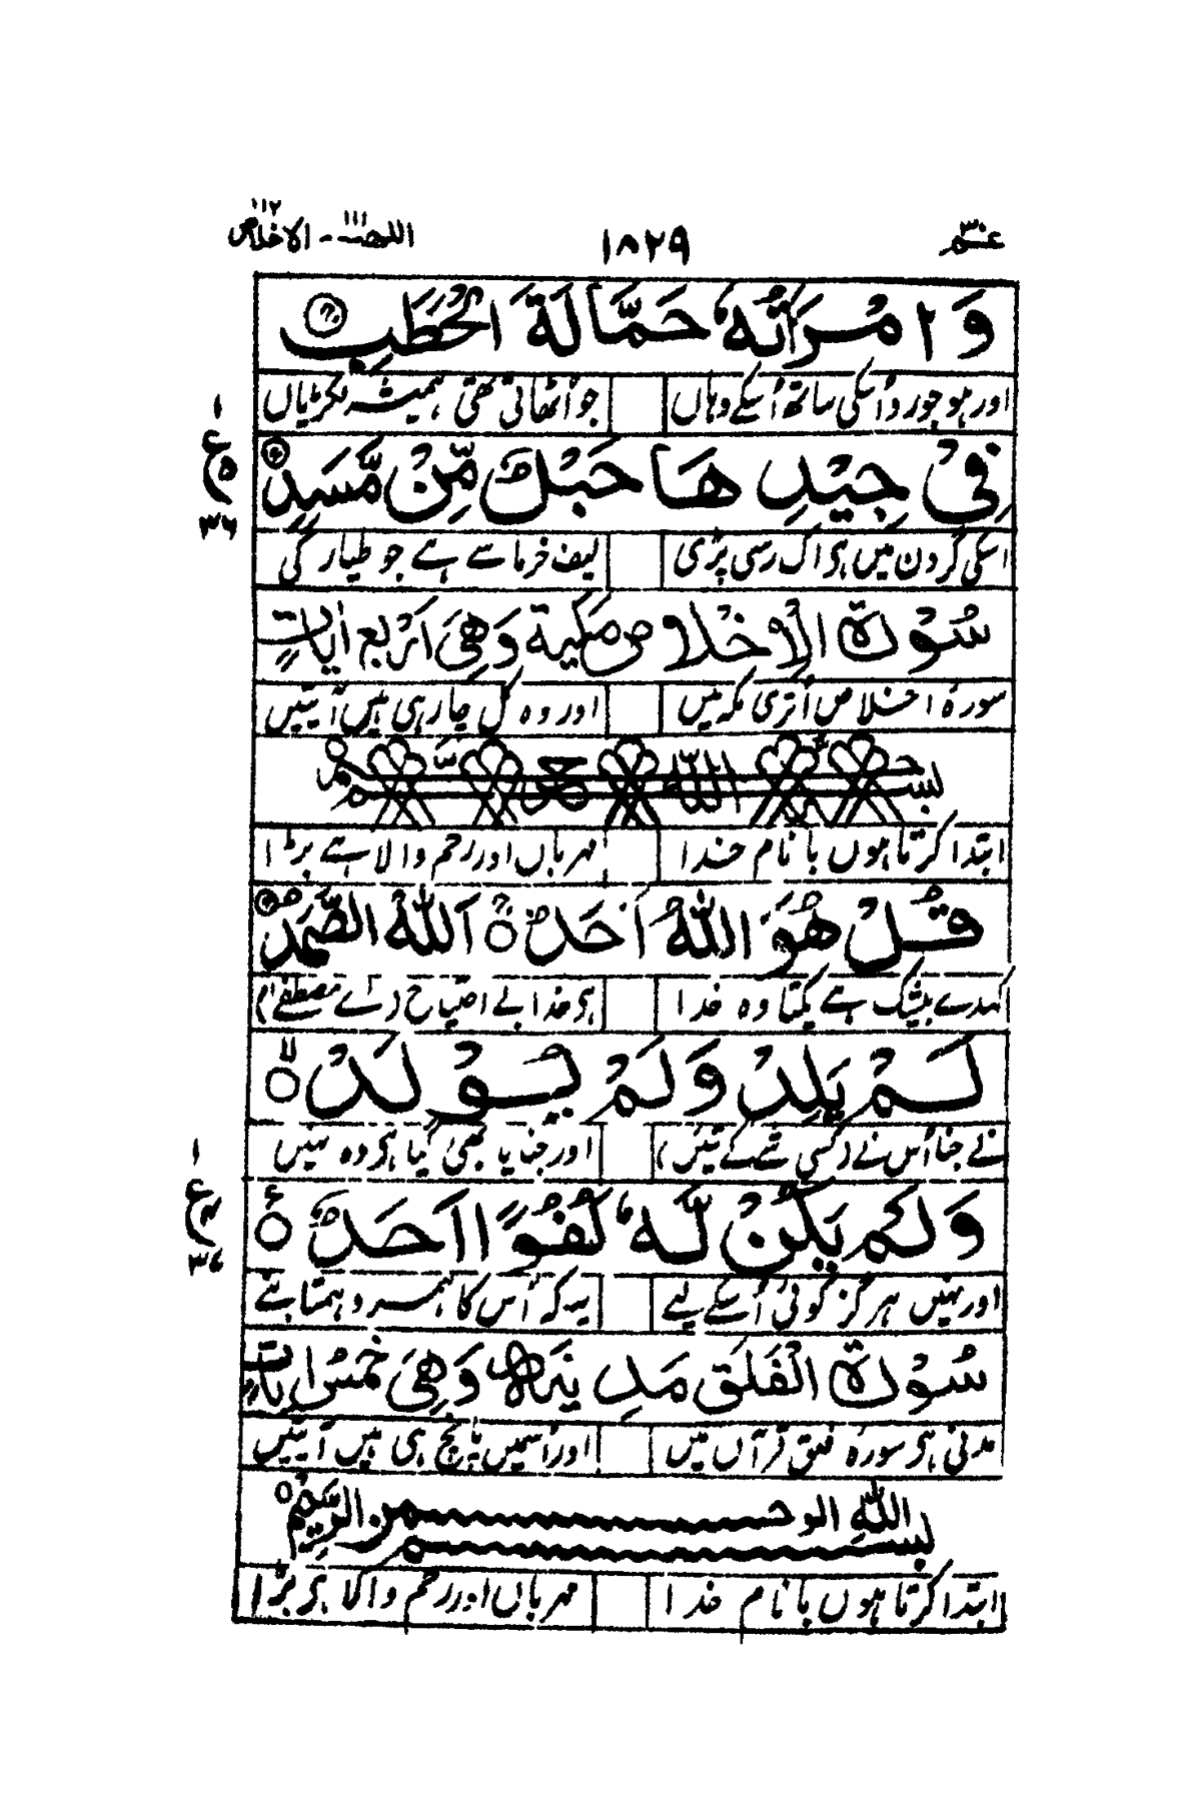 عـم ٣٠ ١٨٢٩ اللهب ١١١ - الاخلاص ١١٢
وَامْرَاَتُهٗ حَمَّالَةَ الْحَطَبِ
اور ہو جورو اُسکی ساتھ اُسکے وہاں جو اُٹھاتی تھی ہمیشہ لکڑیاں
فِيْ جِيْدِهَا حَبْلٌ مِّنْ مَّسَدٍ ۵
١ ع ٣٦
اسکی گردن میں ہو اک رسی پڑی لیف خرما سے ہے جو طیار کی
سُوْرَةُ الْاِخْلَاصِ مَكِّيَّةٌ وَهِيَ اَرْبَعُ اٰيَاتٍ
سورۂ اخلاص اُتری مکہ میں اور وہ کُل چار ہی ہیں آیتیں
بِسْمِ اللهِ الرَّحْمٰنِ الرَّحِيْمِ
ابتدا کرتا ہوں با نام خدا مہرباں اور رحم والا ہے بڑا
قُلْ هُوَ اللّٰهُ اَحَدٌ ۚ اَللّٰهُ الصَّمَدُ
کہدے بیشک ہے یکتا وہ خدا ہی خدا بے احتیاج (اے مصطفےٰ)
لَمْ يَلِدْ وَلَمْ يُوْلَدْ ۙ
نے جنا اُس نے (کسی شے کے تئیں) اور جنا یا بھی گیا ہی وہ نہیں
وَلَمْ يَكُنْ لَّهٗ كُفُوًا اَحَدٌ
١ ع ٣٧
اور نہیں ہرگز کوئی اُسکے لیے یہ کہ اُس کا ہمسر و ہمتا بنے
سُوْرَةُ الْفَلَقِ مَدِيْنَةٌ وَهِيَ خَمْسُ اٰيَاتٍ
مدنی ہی سورۂ فلق قرآں میں اور اُسمیں پانچ ہی ہیں آیتیں
بِسْمِ اللهِ الرَّحْمٰنِ الرَّحِيْمِ
ابتدا کرتا ہوں با نام خدا مہرباں اور رحم والا ہی بڑا